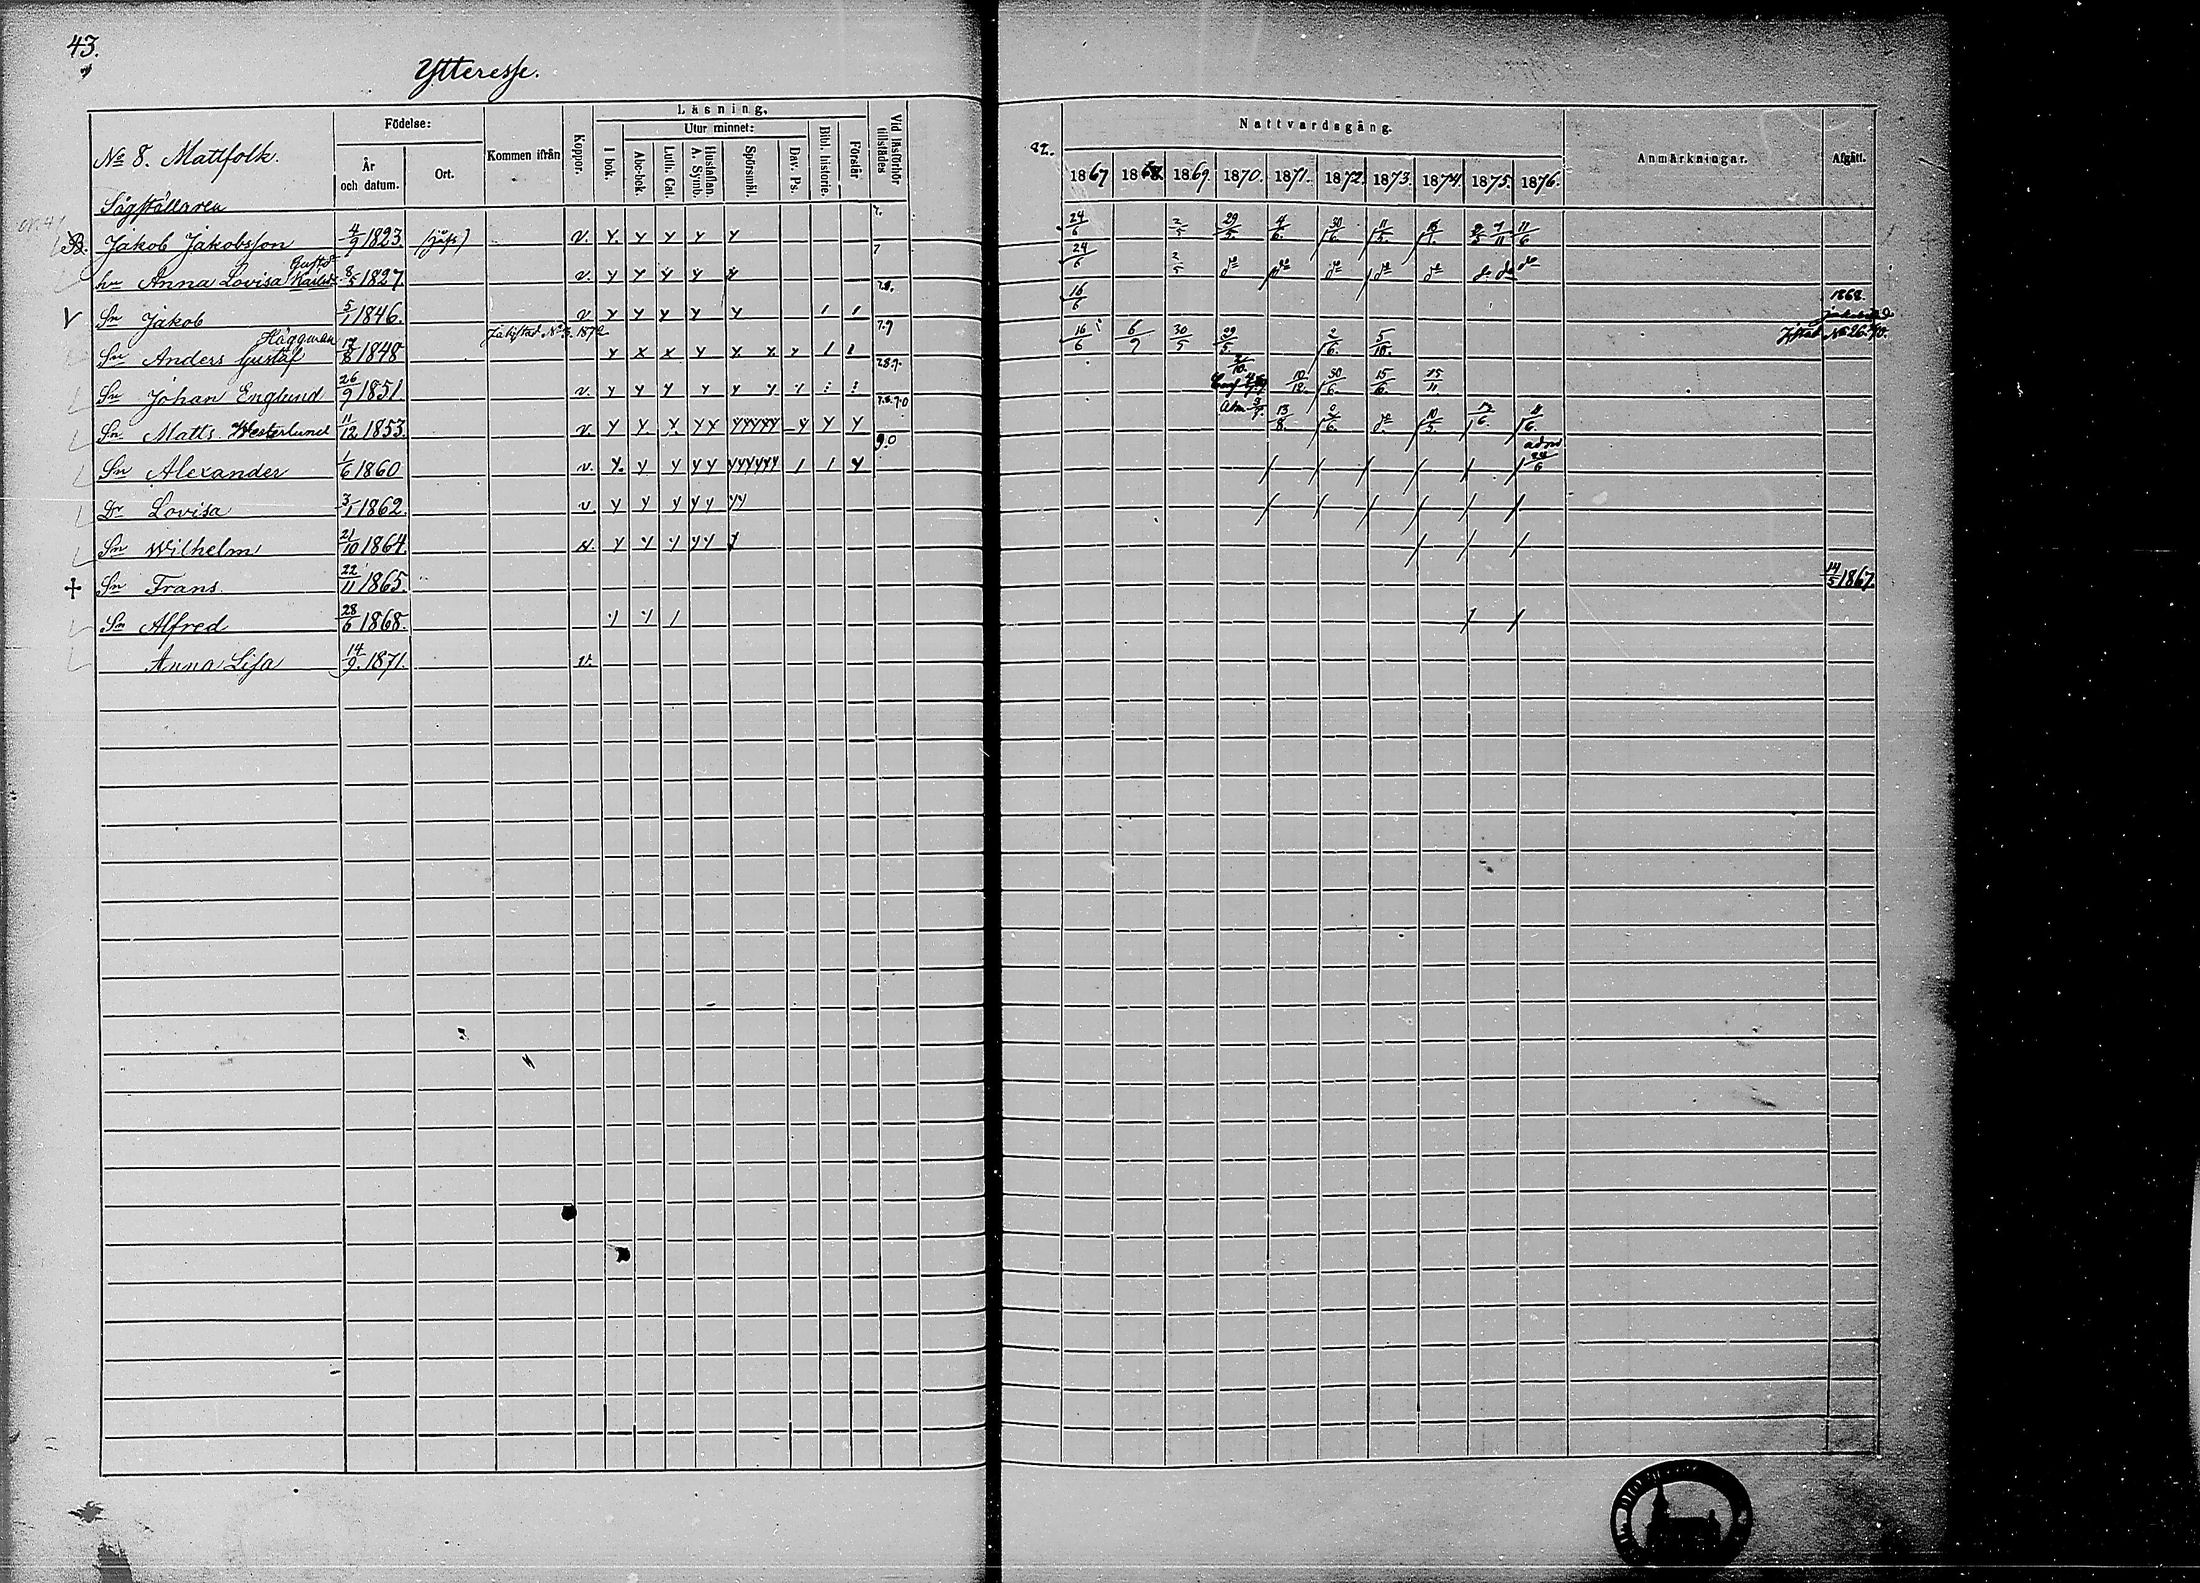 43.
Ytteresse.
No 8. Mattfolk.
Födelse:
År och datum.
Ort.
Kommen ifrån
Koppor.
Läsning.
I bok.
Utur minnet:
Abc-bok
Luth. Cat.
Hustaflan. A. Symb.
Spörsmål.
Dav. Ps.
Bibl. historie.
Förstår.
Vid läsförhör tillstädes
82.
Nattvardsgång.
1867 1868 1869 1870. 1871. 1872. 1873. 1874. 1875. 1876.
Anmärkningar.
Afgått.
Sågställaren
B. Jakob Jakobsson 4/9 1823. v. y. y y y y 7. 24/6 2/5 29/5. 4/6. 30/6. 11/5. 7/11 11/6
Gustd
hu Anna Lovisa Karlsd 8/5 1827. v. y y y y y 7 24/6 2/5 do do do do do do do do
Sn Jakob 5/1 1846. v y y y y y 1 1 7.8. 16/6 1868.
Häggman
Sn Anders Gustaf 1848 Jakobstad No 3. 1872 y x x y y x y 1 1 7.9 16/6 6/9 30/5 29/5. 2/6. 5/10. No 26.
Sn Johan Englund 26/9 1851 v. y y y y y y 7.8.9. 10/12. 30/6. 15/6. 15/11.
Sn Matts Westerlund 11/12 1853. v. y y y y y y y y y y y y y 7.8.9.0 Adm 13/8. 2/6. do 10/5. 11/6.
Sn Alexander 1/6 1860 v. y. y y y y y y y y y y 1 1 y 9.0 adm
Dr Lovisa 3/1 1862. v y y y y y y y
Sn Wilhelm 21/10 1864. v. y y y y y y
Sn Frans. 22/11 1865. 14/5 1867.
Sn Alfred 28/6 1868. y y 1
Anna Lisa 14/9. 1871. v.